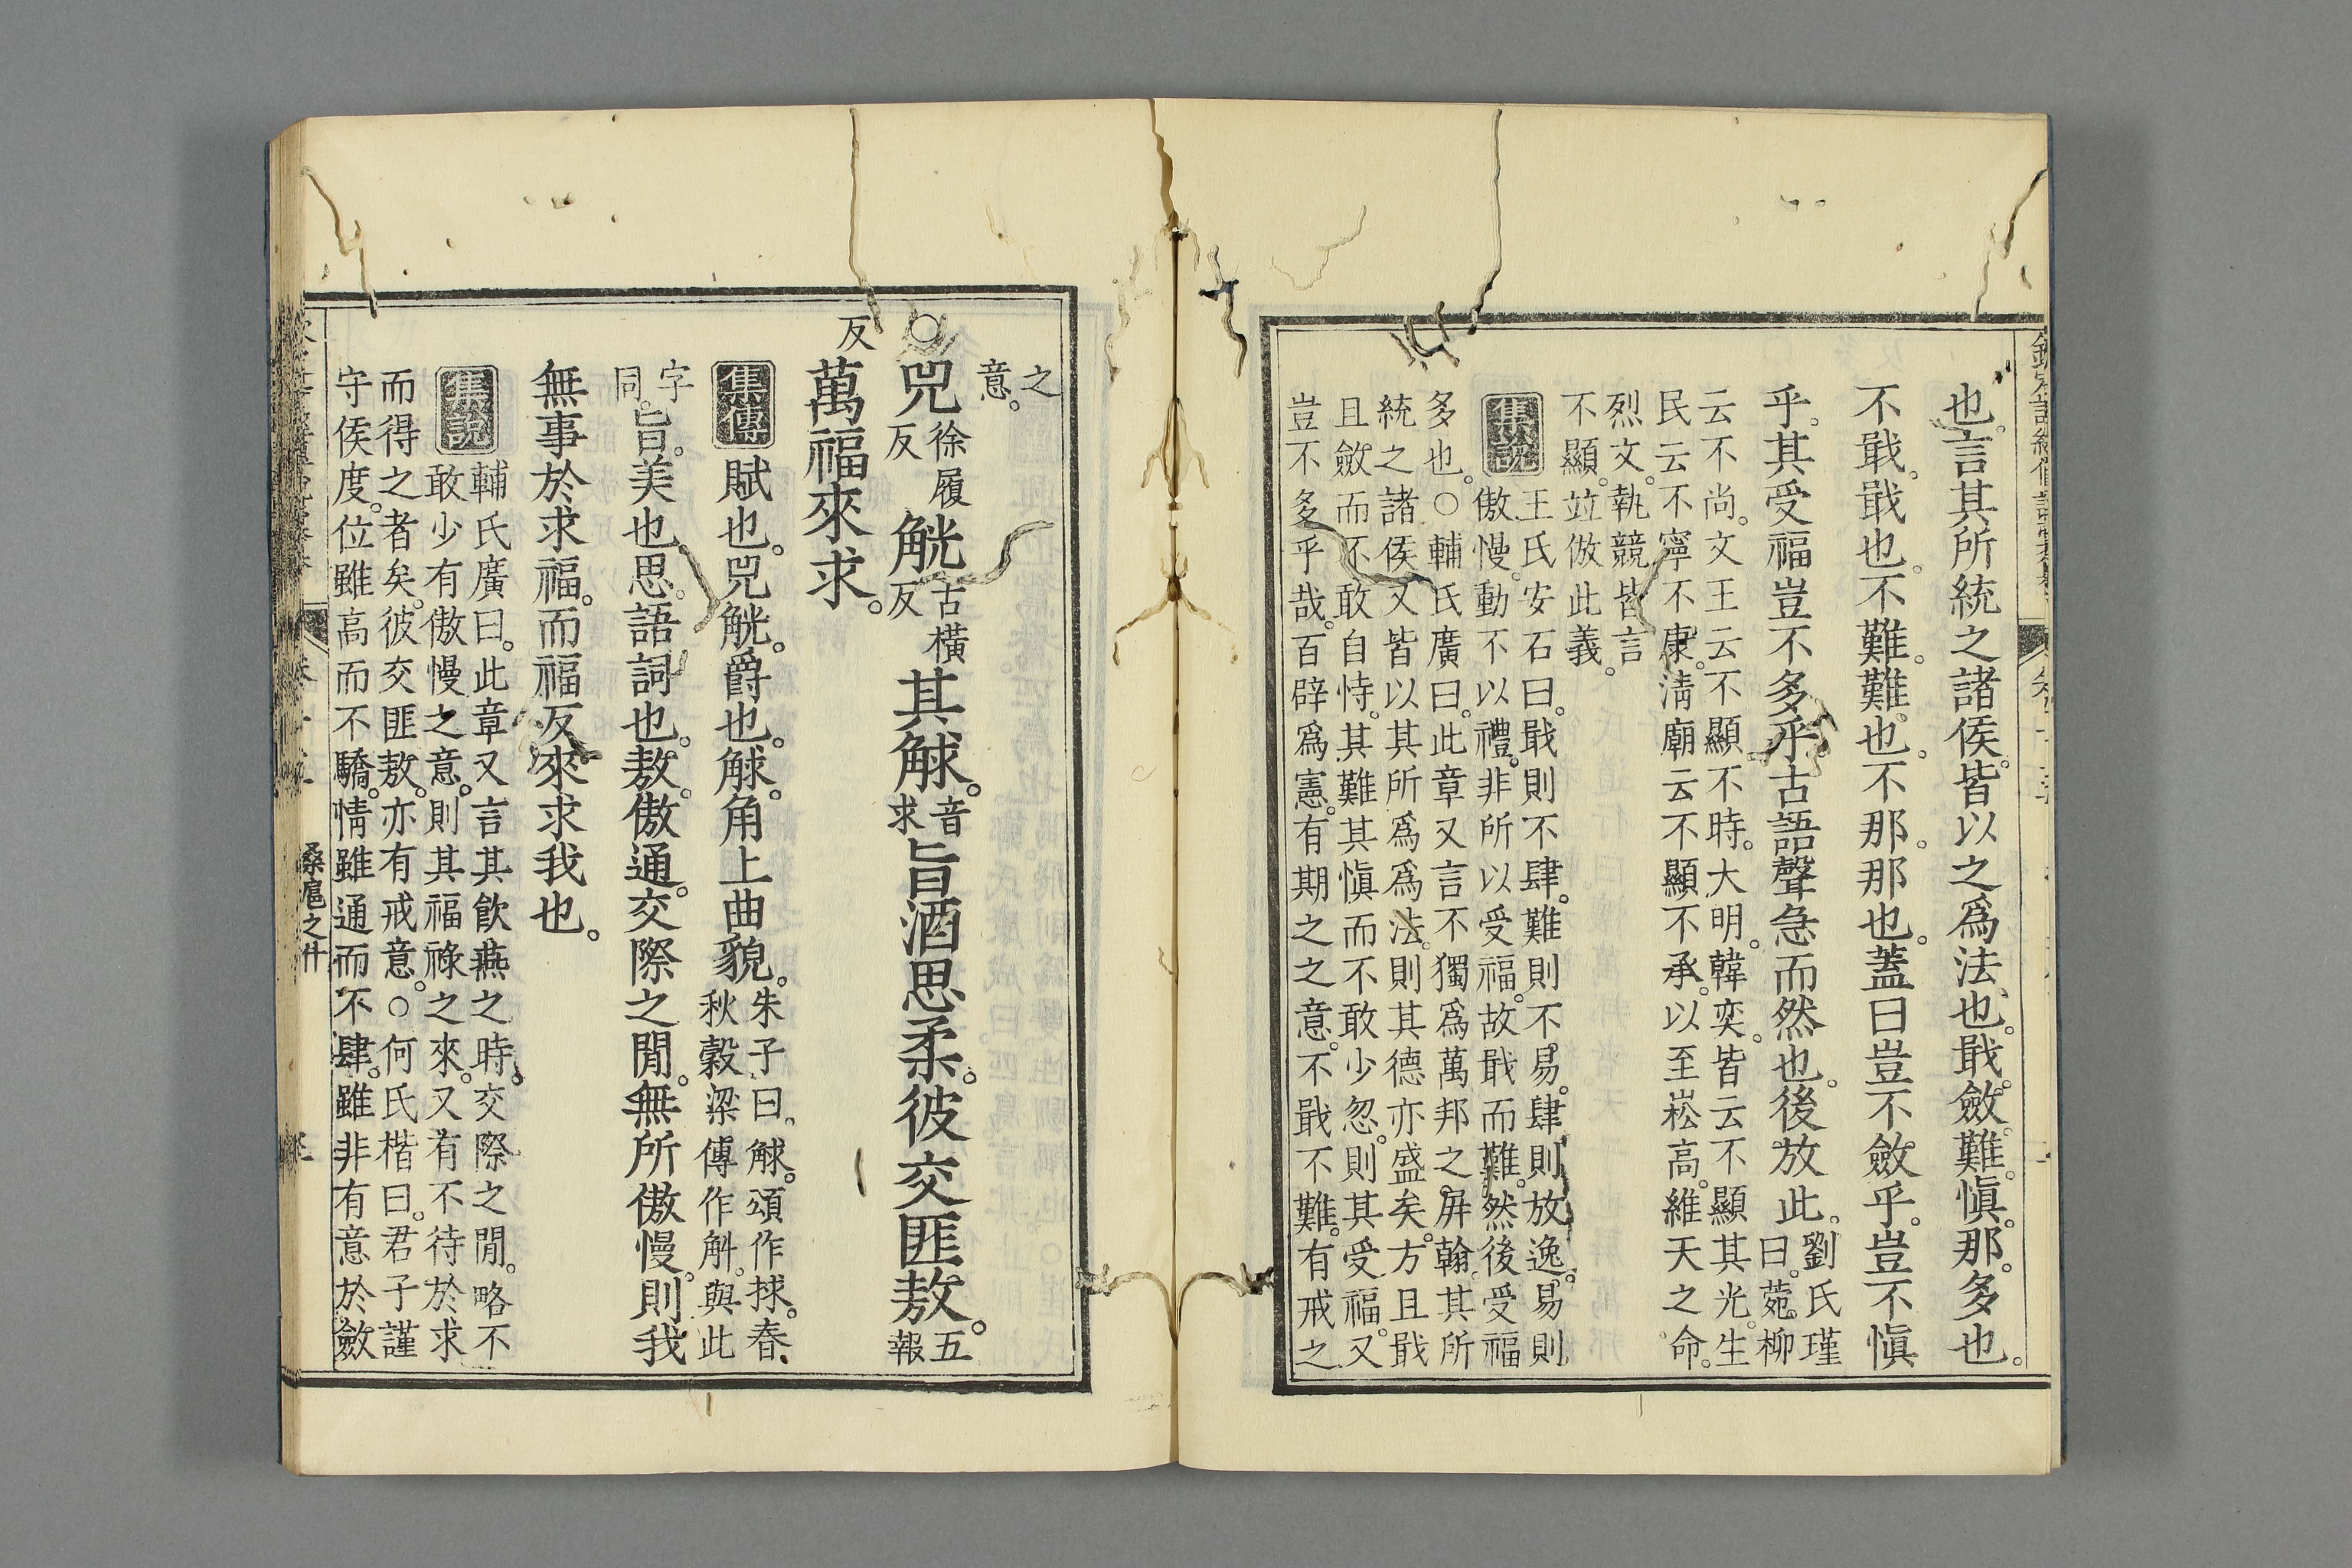 也。言其所統之諸侯。皆以之爲法也。戢。斂。難。愼。那。多也。
不戢。戢也。不難。難也。不那。那也。蓋曰豈不斂乎。豈不愼
乎。其受福豈不多乎。古語聲急而然也。後放此。
劉氏瑾
曰。菀柳
云不尚。文王云不顯不時。大明。韓奕。皆云不顯其光。生
民云不寧不康。淸廟云不顯不承。以至崧高。維天之命。
烈文。執競皆言
不顯。竝倣此義。
集說
王氏安石曰。戢則不肆。難則不易。肆則放逸。易則
傲慢。動不以禮。非所以受福。故戢而難。然後受福
多也。○輔氏廣曰。此章又言不獨爲萬邦之屏翰。其所
統之諸侯。又皆以其所爲爲法。則其德亦盛矣。方且戢
且斂而不敢自恃。其難其愼而不敢少忽。則其受福。又
豈不多乎哉。百辟爲憲。有期之之意。不戢不難。有戒之
之
意。
○兕
徐履
反
觥
古橫
反
其觩。
音
求
旨酒思柔。彼交匪敖。
五
報
反
萬福來求。
集傳
賦也。兕觥。爵也。觩。角上曲貌。
朱子曰。觩。頌作捄。春
秋穀梁傳作斛。與此
字
同。
旨。美也。思。語詞也。敖。傲通。交際之閒。無所傲慢。則我
無事於求福。而福反來求我也。
集說
輔氏廣曰。此章又言其飮燕之時。交際之閒。略不
敢少有傲慢之意。則其福祿之來。又有不待於求
而得之者矣。彼交匪敖。亦有戒意。○何氏楷曰。君子謹
守侯度。位雖高而不驕。情雖通而不肆。雖非有意於斂
桑扈之什